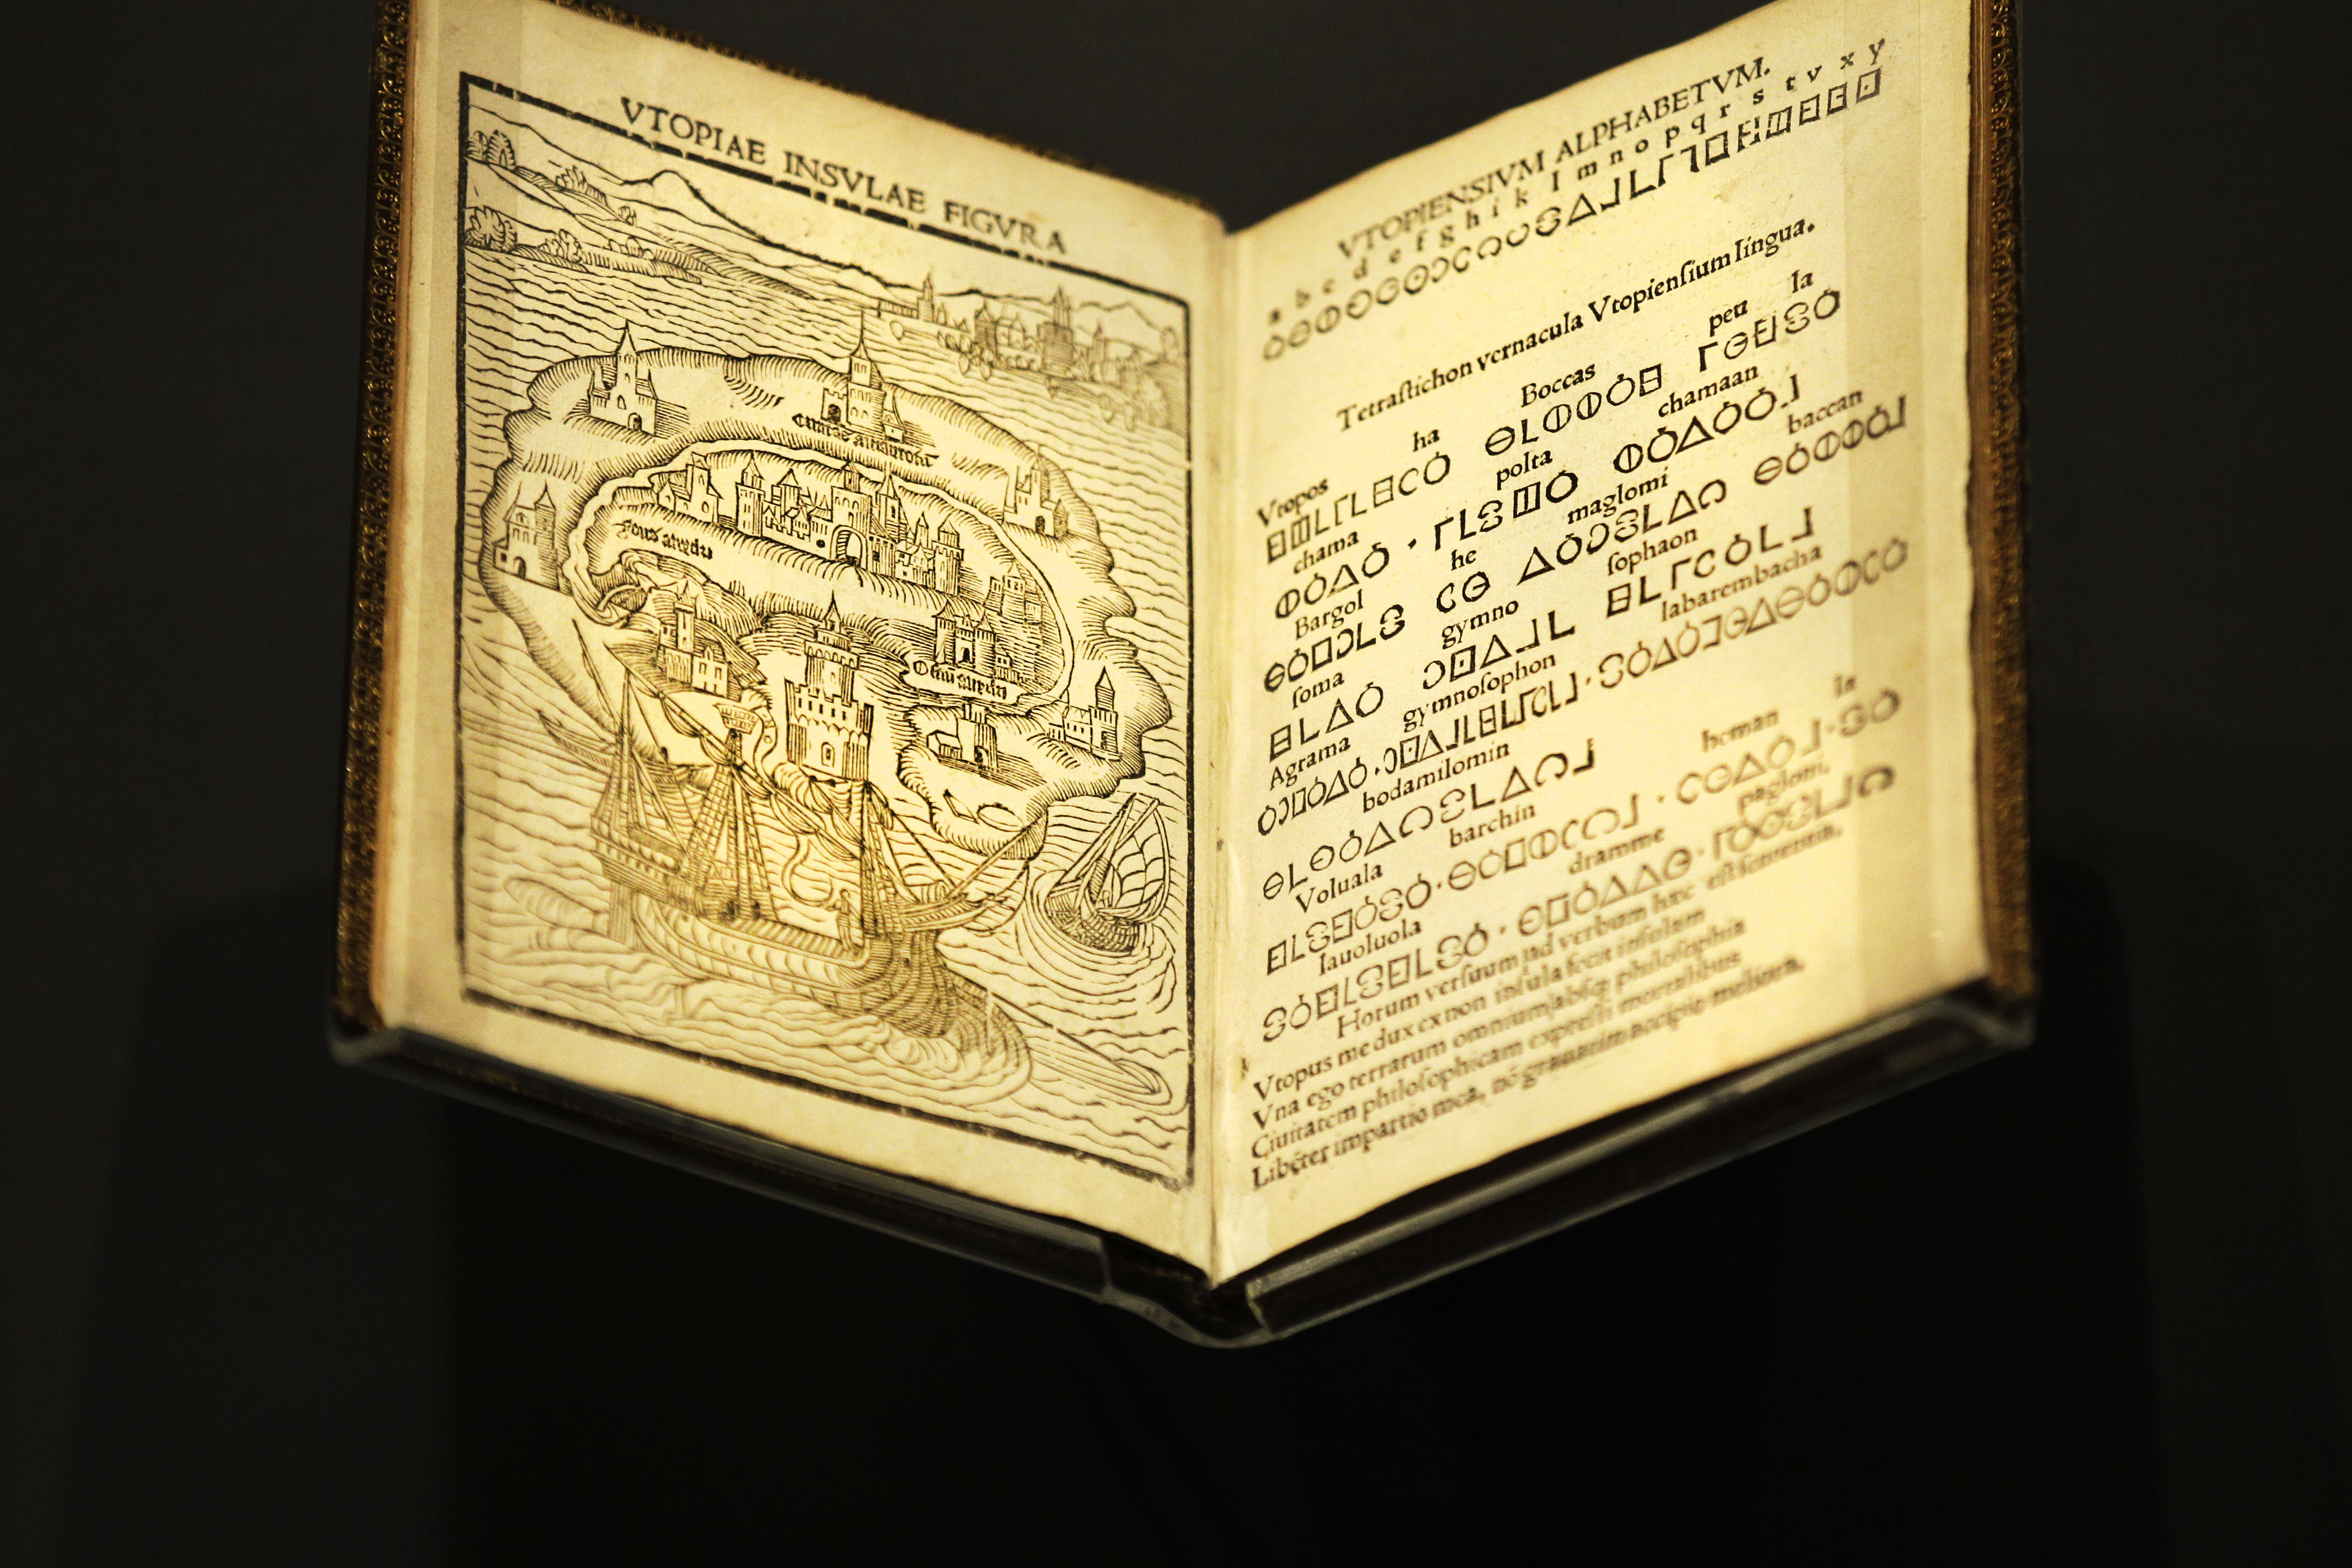 VTOPIAE INSVLAE FIGVRA
Ciuitas amaurotũ
Fons anydri
Ostiũ anydri
VTOPIENSIVM ALPHABETVM.
a b c d e f g h i k l m n o p q r s t v x y
Tetraſtichon vernacula Vtopienſium lingua.
Vtopos ha Boccas peu la
chama polta chamaan
Bargol he maglomi baccan
ſoma gymno ſophaon
Agrama gymnoſophon labarembacha
bodamilomin
Voluala barchin heman la
lauoluola dramme pagloni.
Horum verſuum ad verbum hæc eſt ſententia.
Vtopus me dux ex non inſula fecit inſulam
Vna ego terrarum omnium abſq; philoſophia
Ciuitatem philoſophicam expreſſi mortalibus
Libẽter impartio mea, nõ grauatim accipio meliora.